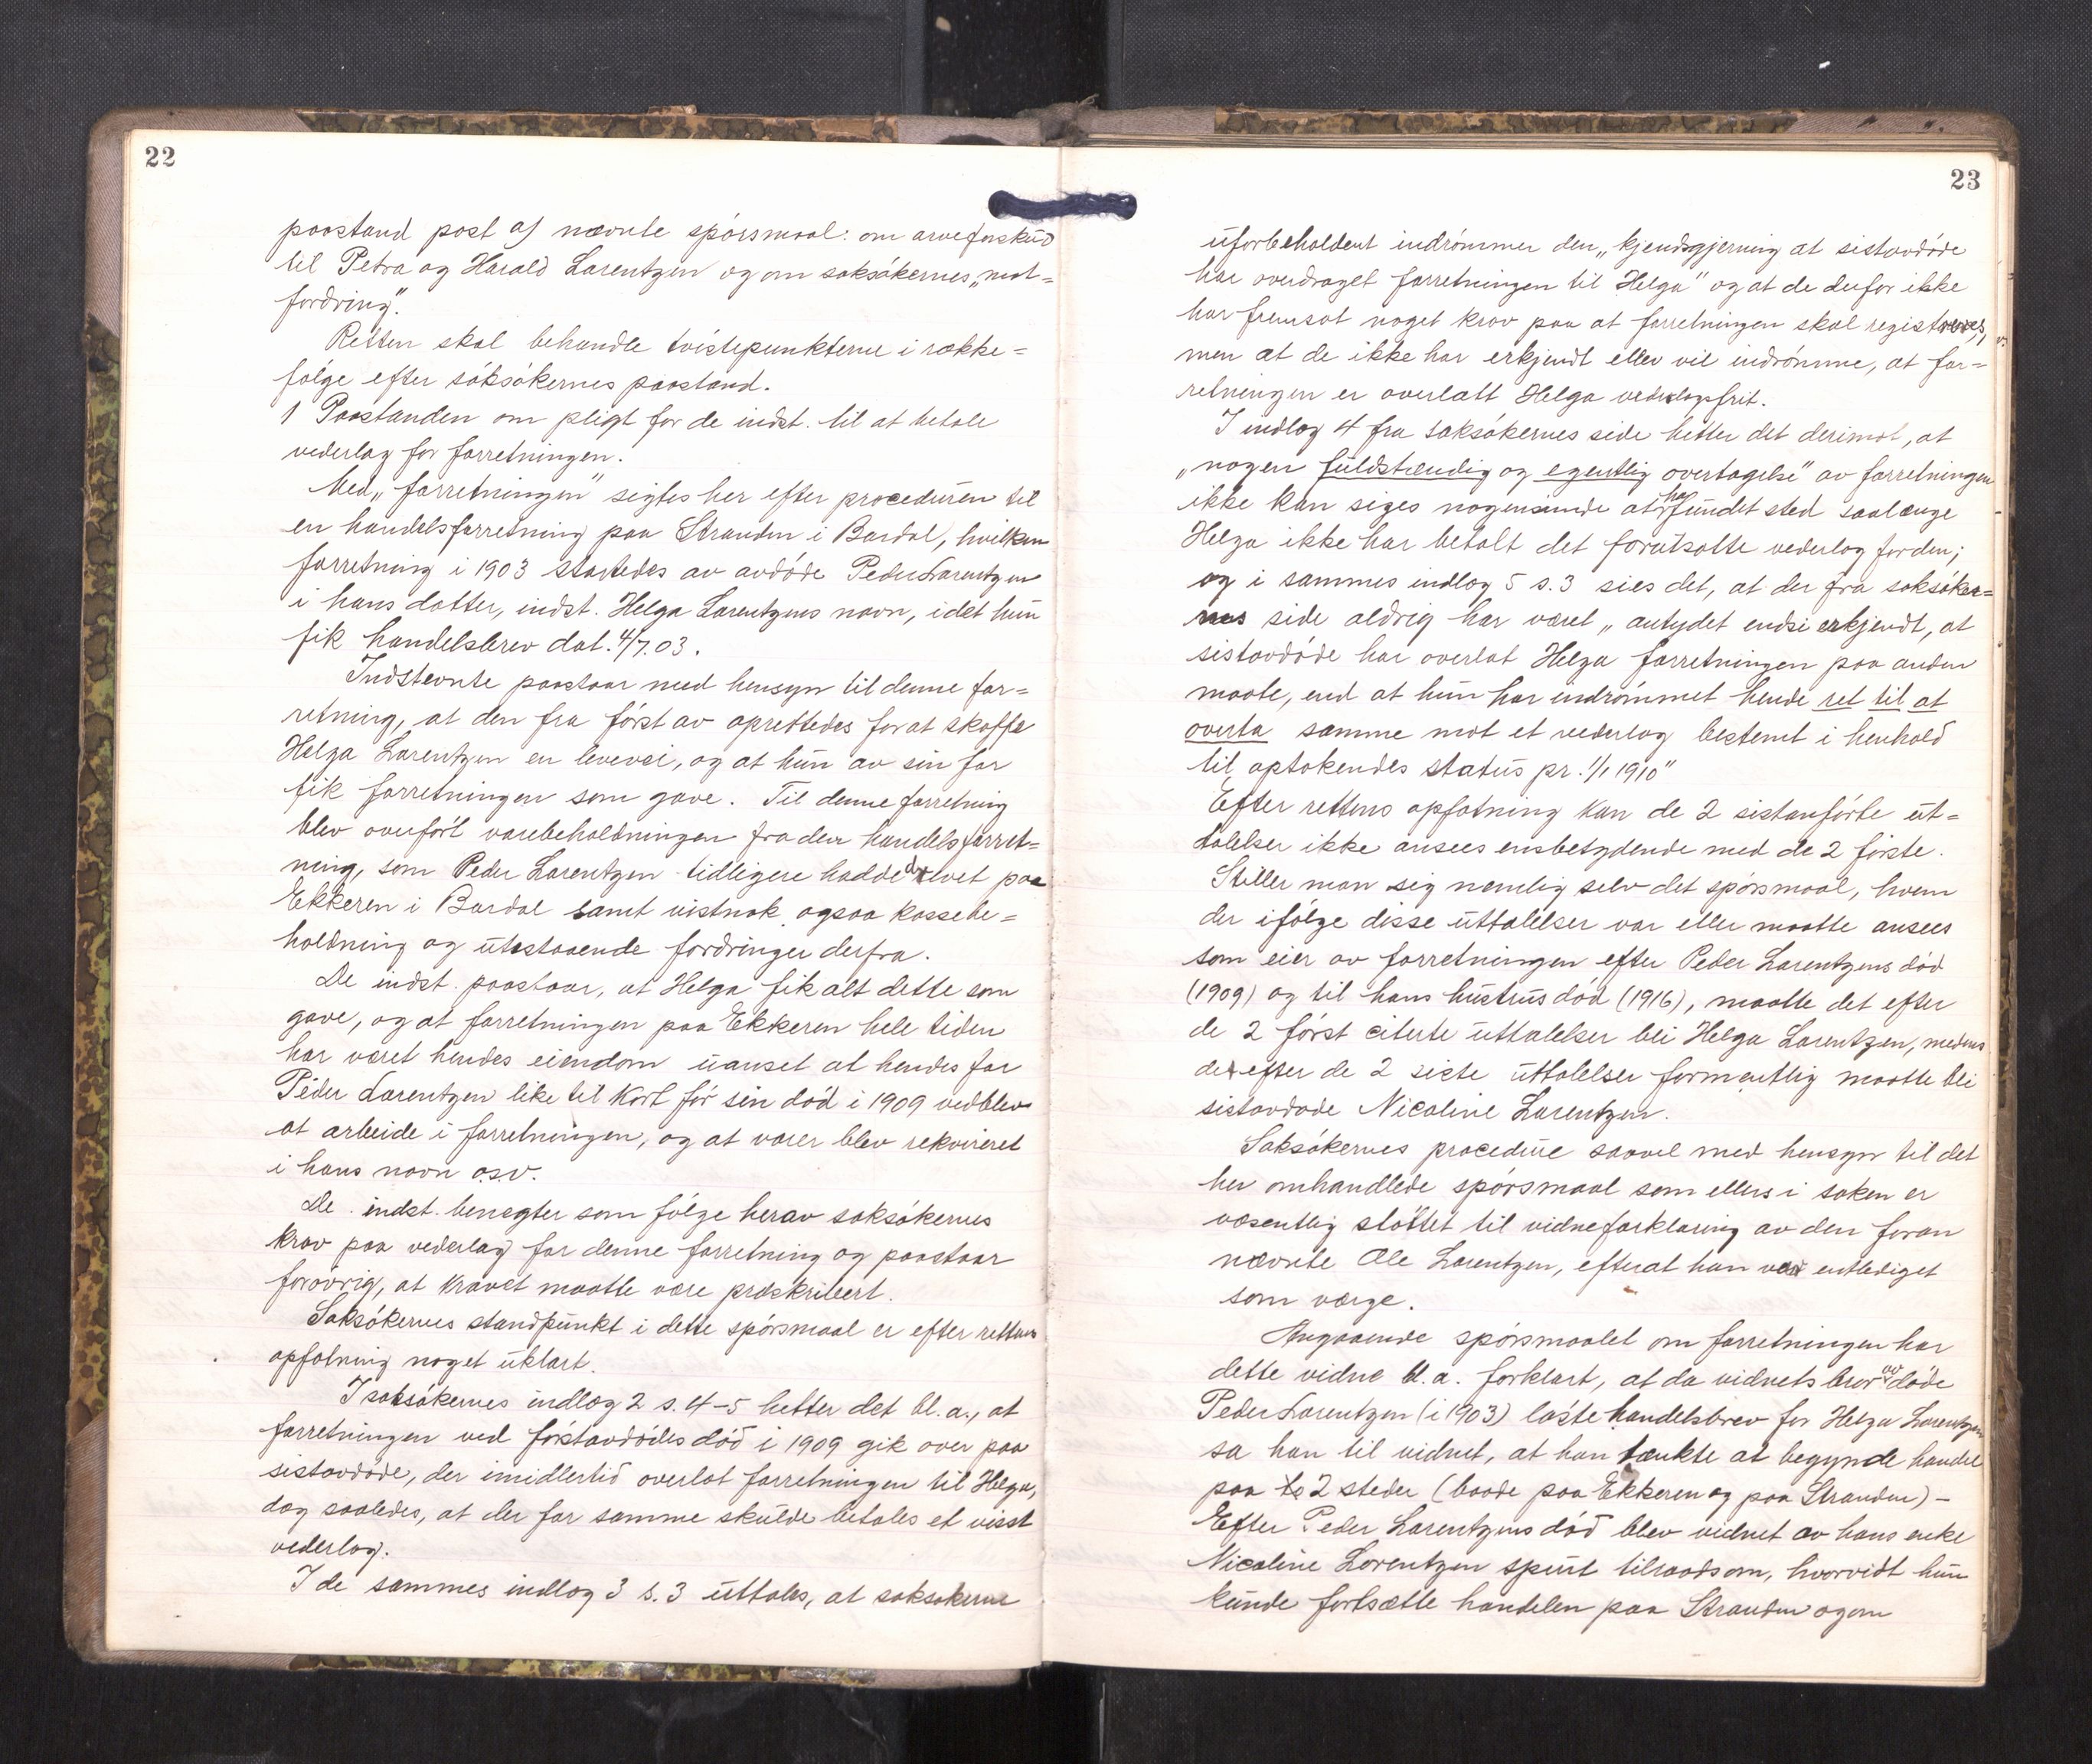 22
paastand post a) nævnte spörsmaal: om arveforskud
til Petra og Harald Larentzen og om saksökernes „mot=
fordring".
Retten skal behandle tvistepunkterne i række=
fölge efter söksökernes paastand.
1 Paastanden om pligt for de indst. til at betale
vederlag for forretningen.
Med „forretningen" sigtes her efter proceduren til
en handelsforretning paa Stranden i Bardal, hvilken
forretning i 1903 startedes av avdöde Peder Larentzen
i hans datter, indst. Helga Larentzens navn, idet hun
fik handelsbrev dat. 4/7.03.
Indstevnte paastaar med hensyn til denne for=
retning, at den fra först av oprettedes for at skaffe
Helga Larentzen en levevei, og at hun av sin far
fik forretningen som gave. Til denne forretning
blev overfört varebeholdningen fra den handelsforret=
ning, som Peder Larentzen tidligere hadde drevet paa
Ekkeren i Bardal samt vistnok ogsaa kassebe=
holdning og utestaaende fordringer derfra.
De indst. paastaar, at Helga fik alt dette som
gave, og at forretningen paa Ekkeren hele tiden
har været hendes eiendom uanset at hendes far
Peder Larentzen like til kort för sin död i 1909 vedblev
at arbeide i forretningen, og at varer blev rekvireret
i hans navn o.s.v.
De indst. benegter som fölge herav saksökernes
krav paa vederlag for denne forretning og paastaar
forövrig, at kravet maatte være præskribert.
Saksökernes standpunkt i dette spörsmaal er efter rettens
opfatning noget uklart.
I saksökernes indlæg 2 s. 4-5 hetter det bl.a., at
forretningen ved förstavdödes död i 1909 gik over paa
sistavdöde, der imidlertid overlot forretningen til Helga,
dog saaledes, at der for samme skulde betales et visst
vederlag.
I de sammes indlæg 3 s. 3 uttales, at saksökerne
23
uforbeholdent indrömmer den „kjendsgjerning at sistavdöde
har overdraget forretningen til Helga" og at de derfor ikke
har fremsat noget krav paa at forretningen skal registreres,
men at de ikke har erkjendt eller vil indrömme, at for=
retningen er overlatt Helga vederlagsfrit.
I indlæg 4 fra saksökernes side hetter det derimot, at
„nogen fuldstændig og egentlig overtagelse" av forretningen
ikke kan siges nogensinde at ha fundet sted saalænge
Helga ikke har betalt det forutsatte vederlag for den;
og i sammes indlæg 5 s. 3 sies det, at der fra saksöker=
nes side aldrig har været „antydet endsi erkjendt, at
sistavdöde har overlat Helga forretningen paa anden
maate, end at hun har indrömmet hende ret til at
overta samme mot et vederlag bestemt i henhold
til optakendes status pr. 1/1 1910"
Efter rettens opfatning kan de 2 sistanförte ut=
talelser ikke ansees ensbetydende med de 2 förste.
Stiller man sig nemlig selv det spörsmaal, hvem
der ifölge disse uttalelser var eller maatte ansees
som eier av forretningen efter Peder Larentzens död
(1909) og til hans hustrus död (1916), maatte det efter
de 2 först citerte uttalelser bli Helga Larentzen, medens
det efter de 2 siste uttalelser formentlig maatte bli
sistavdöde Nicoline Larentzen.
Saksökernes procedure saavel med hensyn til det
her omhandlede spörsmaal som ellers i saken er
væsentlig stöttet til vidneforklaring av den foran
nævnte Ole Larentzen, efterat han var entlediget
som værge.
Angaaende spörsmaalet om forretningen har
dette vidne bl.a. forklart, at da vidnets bror avdöde
Peder Larentzen (i 1903) löste handelsbrev for Helga Larentzen
sa han til vidnet, at han tænkte at begynde handel
paa 2 steder (baade paa Ekkeren og paa Stranden) –
Efter Peder Larentzens död blev vidnet av hans enke
Nicoline Lorentzen spurt tilraads om, hvorvidt hun
kunde fortsætte handelen paa Stranden og om